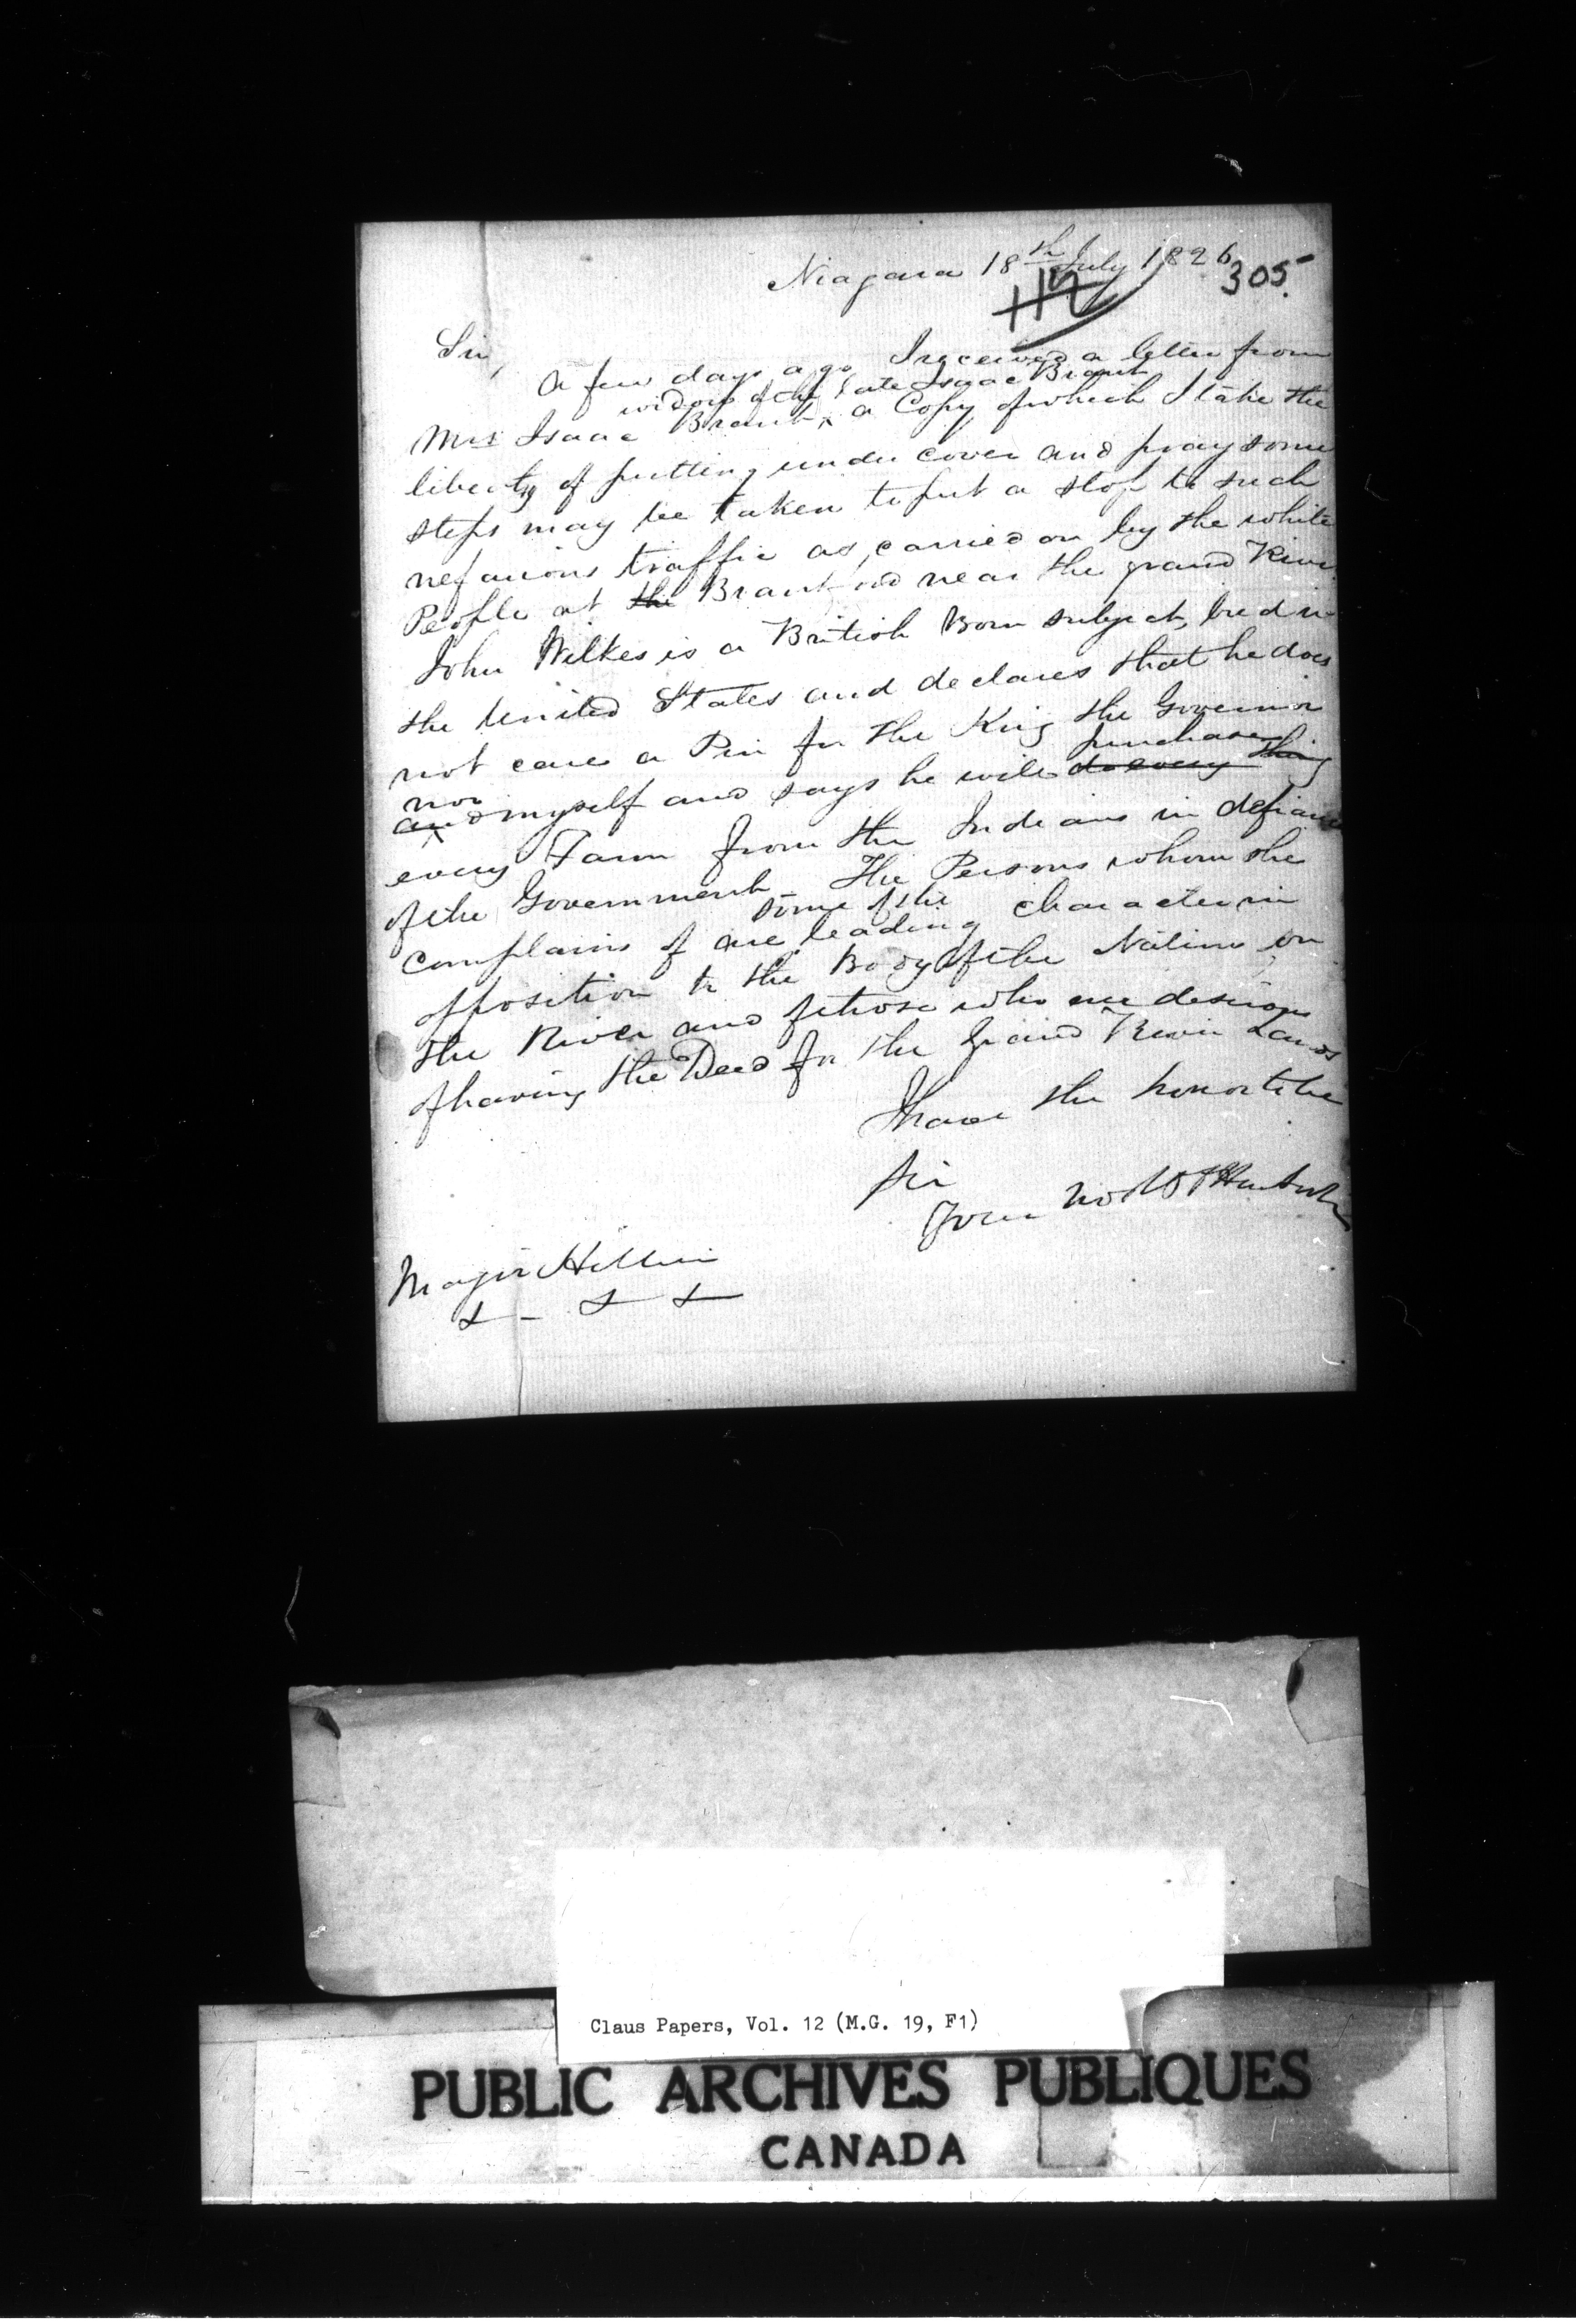 Niagara 18th July 1826
305
112
Sir,
A few days ago I received a letter from
widow of the late Isaac Brant
Mrs Isaac Brant, a Copy of which I take the
liberty of putting under cover and pray some
steps may be taken to put a stop to such
nefarious traffic as carried on by the white
People at the Brantford near the grand River
John Wilkes is a British Born subject, bred in
the United States and declares that he does
not care a Pin for the King the Governor
nor purchase
and myself and says he will do every thing
every Farm from the Indians in defiance
of the Government - The Persons whom she
some of the
complains of are leading character in
opposition to the Body of the Nations on
the River and of those who are desirous
of having the Deed for the Grand River Lands
I have the honor to be
Sir
Your
Major Hillier
& - & &
Claus Papers, Vol. 12 (M.G. 19, F1)
PUBLIC ARCHIVES PUBLIQUES
CANADA